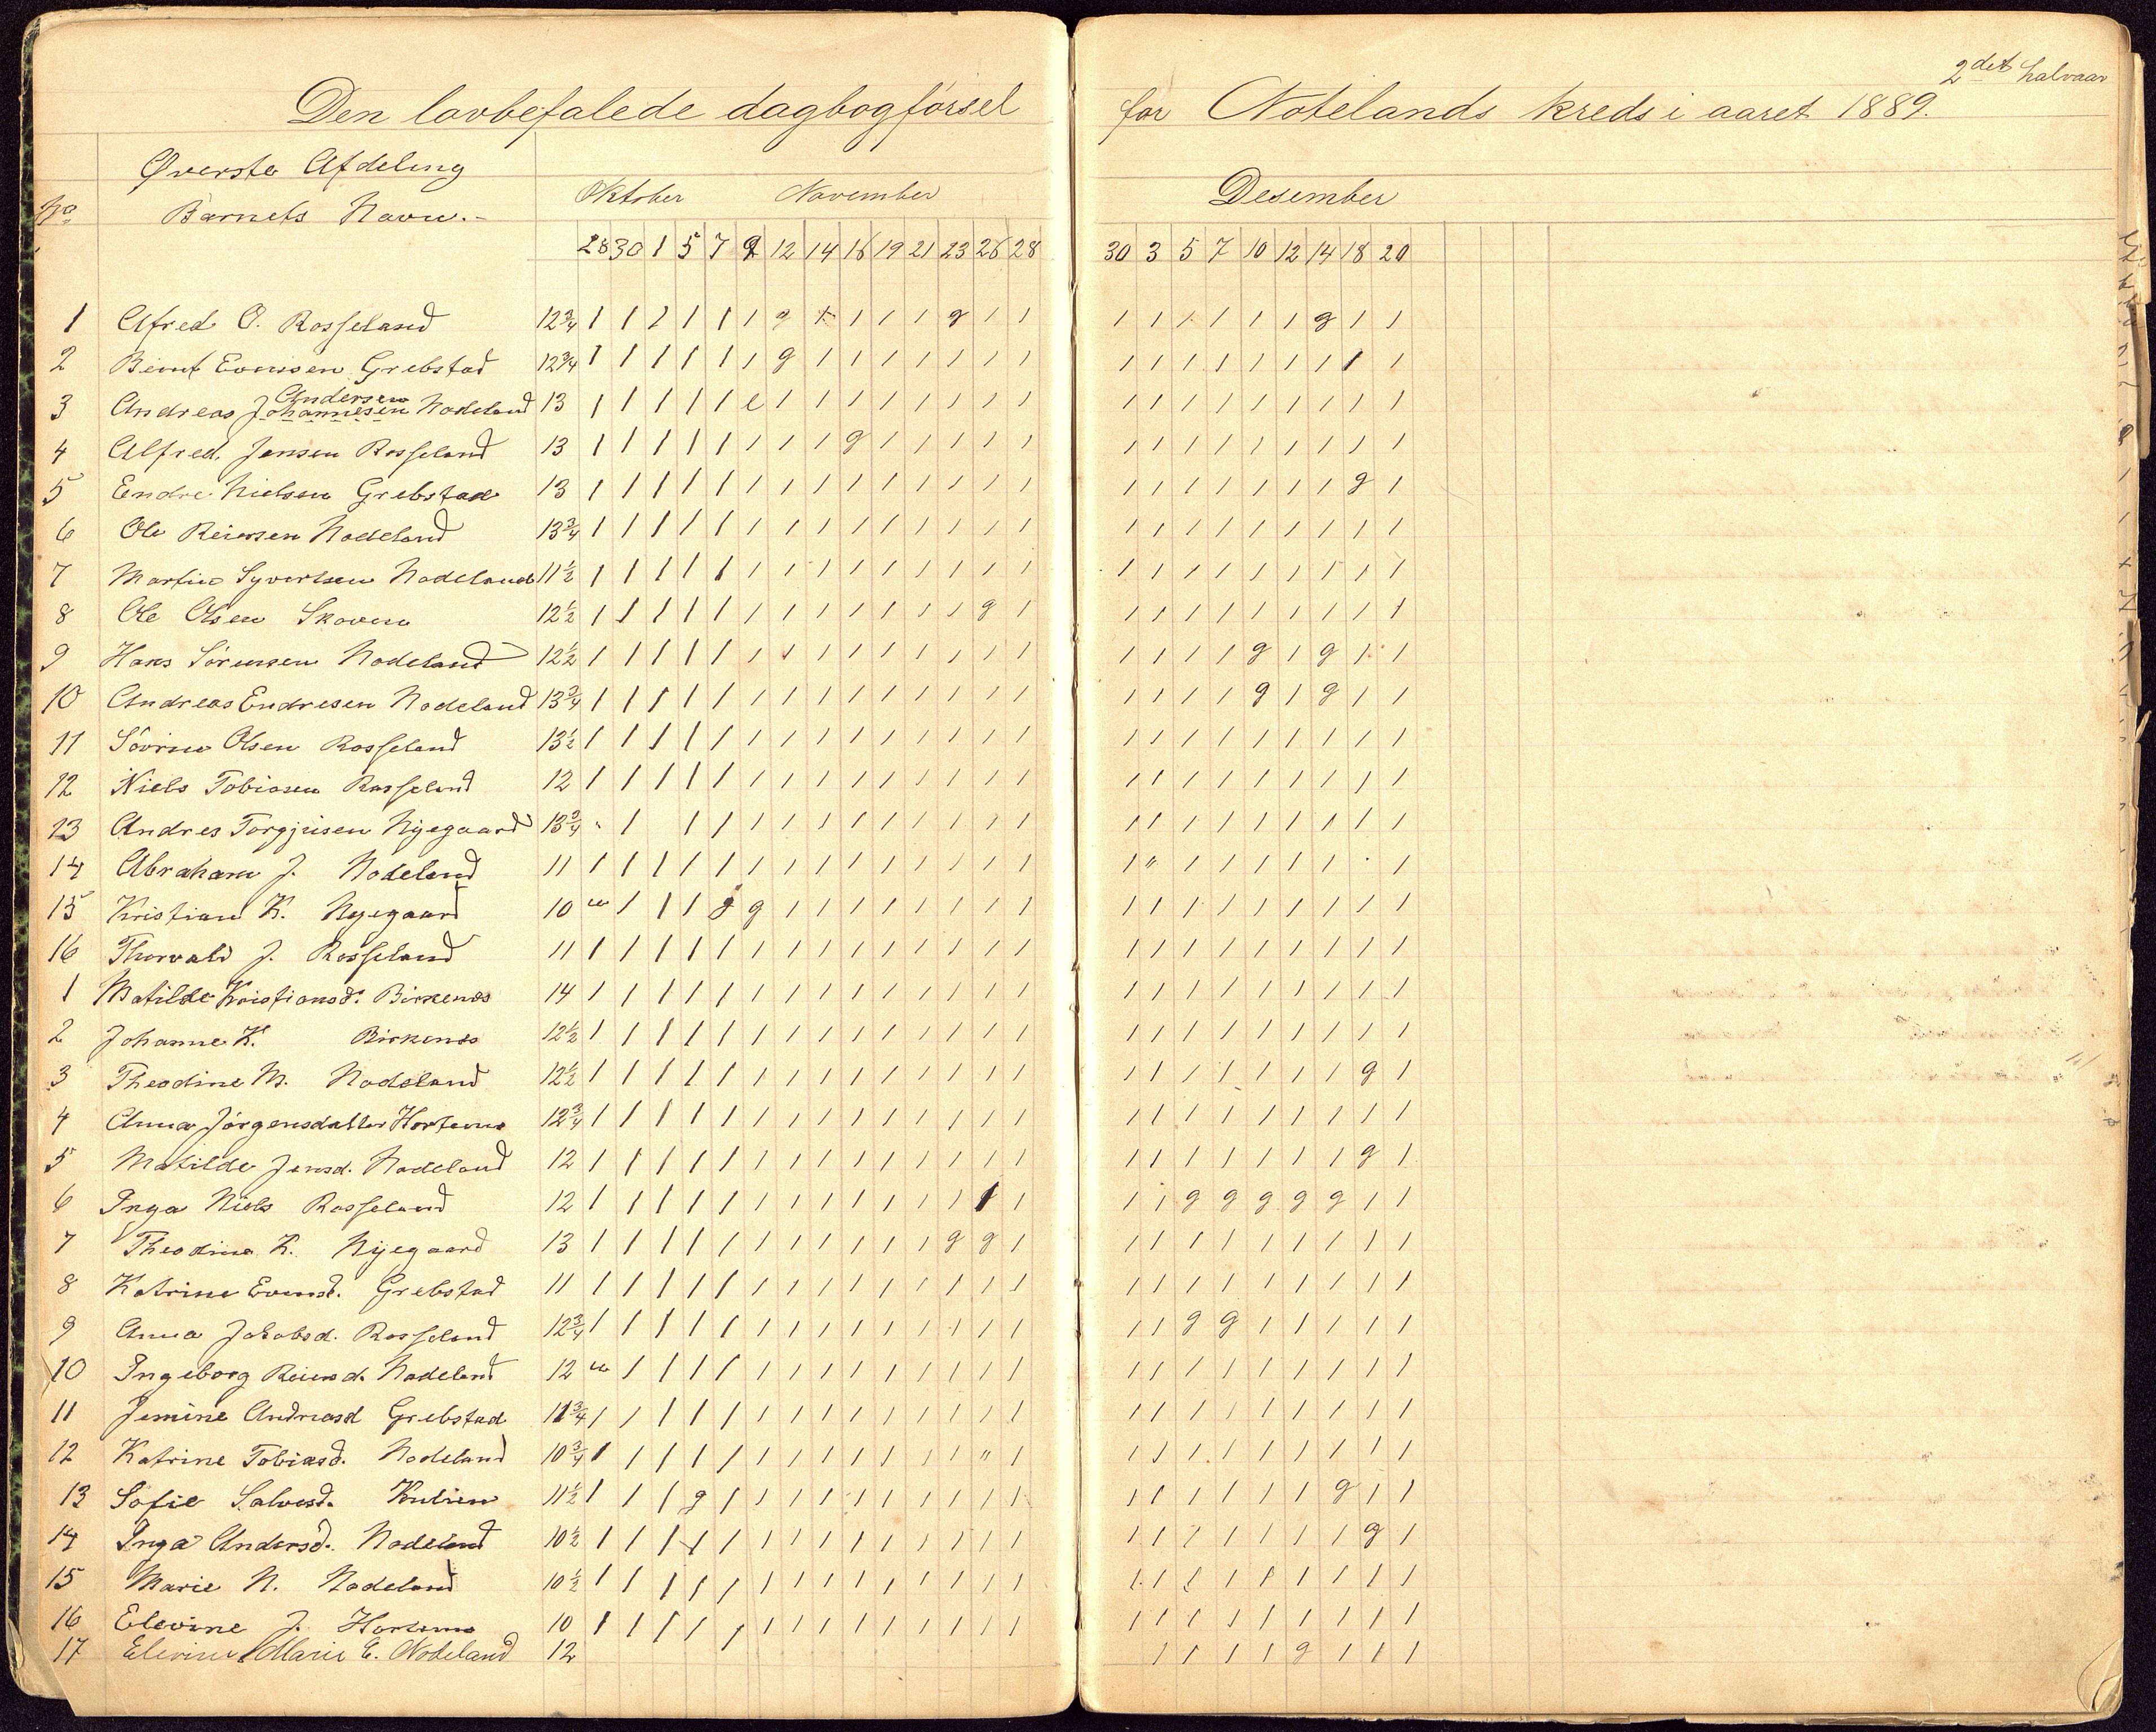 2det halvaar
Den lovbefalede dagbogførsel for Nodelands kreds i aaret 1889.
Øverste Afdeling
Oktober November Desember
No Barnets Navn.-
28 30 1 5 7 9 12 14 16 19 21 23 26 28 30 3 5 7 10 12 14 18 20
1 Alfred O. Rosseland 12 3/4 1 1 1 1 1 1 g 1 1 1 1 g 1 1 1 1 1 1 1 1 g 1 1
2 Bernt Grebstad 12 3/4 1 1 1 1 1 1 g 1 1 1 1 1 1 1 1 1 1 1 1 1 1 1 1
Andersen
3 Andreas Johannesen Nodeland 13 1 1 1 1 1 e 1 1 1 1 1 1 1 1 1 1 1 1 1 1 1 1 1
4 Alfred Jensen Rosseland 13 1 1 1 1 1 1 1 1 g 1 1 1 1 1 1 1 1 1 1 1 1 1 1
5 Endre Nielsen Grebstad 13 1 1 1 1 1 1 1 1 1 1 1 1 1 1 1 1 1 1 1 1 1 g 1
6 Ole Reiersen Nodeland 13 3/4 1 1 1 1 1 1 1 1 1 1 1 1 1 1 1 1 1 1 1 1 1 1 1
7 Martin Syvertsen Nodeland 11 1/2 1 1 1 1 1 1 1 1 1 1 1 1 1 1 1 1 1 1 1 1 1 1 1
8 Ole Olsen Skoven 12 1/2 1 1 1 1 1 1 1 1 1 1 1 1 g 1 1 1 1 1 1 1 1 1 1
9 Hans Sörensen Nodeland 12 1/2 1 1 1 1 1 1 1 1 1 1 1 1 1 1 1 1 1 1 g 1 g 1 1
10 Andreas Endresen Nodeland 13 3/4 1 1 1 1 1 1 1 1 1 1 1 1 1 1 1 1 1 1 g 1 g 1 1
11 Sövrin Olsen Rosseland 13 1/2 1 1 1 1 1 1 1 1 1 1 1 1 1 1 1 1 1 1 1 1 1 1 1
12 Niels Tobiasen Rosseland 12 1 1 1 1 1 1 1 1 1 1 1 1 1 1 1 1 1 1 1 1 1 1 1
13 Andres Torgjusen Nyegaard 13 3/4 " 1 1 1 1 1 1 1 1 1 1 1 1 1 1 1 1 1 1 1 1 1
14 Abraham J. Nodeland 11 1 1 1 1 1 1 1 1 1 1 1 1 1 1 1 " 1 1 1 1 1 . 1
15 Kristian K. Nyegaard 10 " 1 1 1 g g 1 1 1 1 1 1 1 1 1 1 1 1 1 1 1 1 1
16 Thorvald J. Rosseland 11 1 1 1 1 1 1 1 1 1 1 1 1 1 1 1 1 1 1 1 1 1 1 1
1 Matilde Kristiansd. Birkenes 14 1 1 1 1 1 1 1 1 1 1 1 1 1 1 1 1 1 1 1 1 1 1 1
2 Johanne K. Birkenes 12 1/2 1 1 1 1 1 1 1 1 1 1 1 1 1 1 1 1 1 1 1 1 1 1 1
3 Theodine M. Nodeland 12 1/2 1 1 1 1 1 1 1 1 1 1 1 1 1 1 1 1 1 1 1 1 1 g 1
4 Anna Jörgensdatter Hortemo 12 3/4 1 1 1 1 1 1 1 1 1 1 1 1 1 1 1 1 1 1 1 1 1 1 1
5 Matilde Jensd. Nodeland 12 1 1 1 1 1 1 1 1 1 1 1 1 1 1 1 1 1 1 1 1 1 g 1
6 Inga Niels Rosseland 12 1 1 1 1 1 1 1 1 1 1 1 1 1 1 1 1 g g g g g 1 1
7 Theodine K. Nyegaard 13 1 1 1 1 1 1 1 1 1 1 1 g g 1 1 1 1 1 1 1 1 1 1
8 Katrine Evensd. Grebstad 11 1 1 1 1 1 1 1 1 1 1 1 1 1 1 1 1 1 1 1 1 1 1 1
9 Anna Jakobsd. Rosseland 12 3/4 1 1 1 1 1 1 1 1 1 1 1 1 1 1 1 1 g g 1 1 1 1 1
10 Ingeborg Reiersd. Nodeland 12 " 1 1 1 1 1 1 1 1 1 1 1 1 1 1 1 1 1 1 1 1 1 1
11 Jemine Andreasd Grebstad 11 3/4 1 1 1 1 1 1 1 1 1 1 1 1 1 1 1 1 1 1 1 1 1 1 1
12 Katrine Tobiasd. Nodeland 10 3/4 1 1 1 1 1 1 1 1 1 1 1 1 " 1 1 1 1 1 1 1 1 1 1
13 Sofie Salvesd. 11 1/2 1 1 1 g 1 1 1 1 1 1 1 1 1 1 1 1 1 1 1 1 g 1 1
14 Inga Andersd. Nodeland 10 1/2 1 1 1 1 1 1 1 1 1 1 1 1 1 1 1 1 1 1 1 1 1 g 1
15 Marie N. Nodeland 10 1/2 1 1 1 1 1 1 1 1 1 1 1 1 1 1 1 1 1 1 1 1 1 1 1
16 Elevine J. Hortemo 10 1 1 1 1 1 1 1 1 1 1 1 1 1 1 1 1 1 1 1 1 1 1 1
17 Elevine Marie E. Nodeland 12 1 1 1 1 g 1 1 1